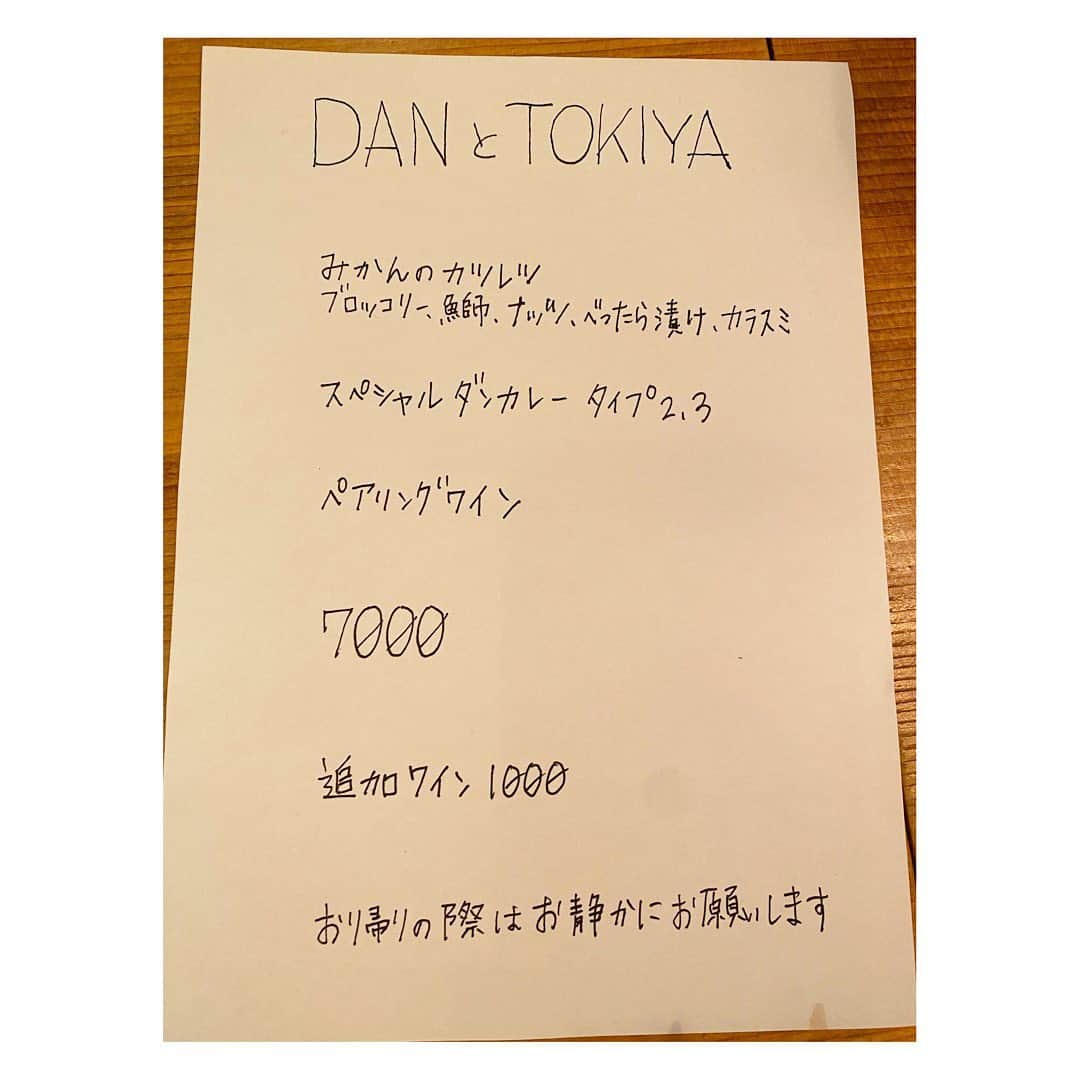 DANとTOKIYA
みかんのカツレツ
ブロッコリー、鰤、ナッツ、べったら漬け、カラスミ
スペシャルダンカレー タイプ2、3
ペアリングワイン
7000
追加ワイン 1000
お帰りの際はお静かにお願いします